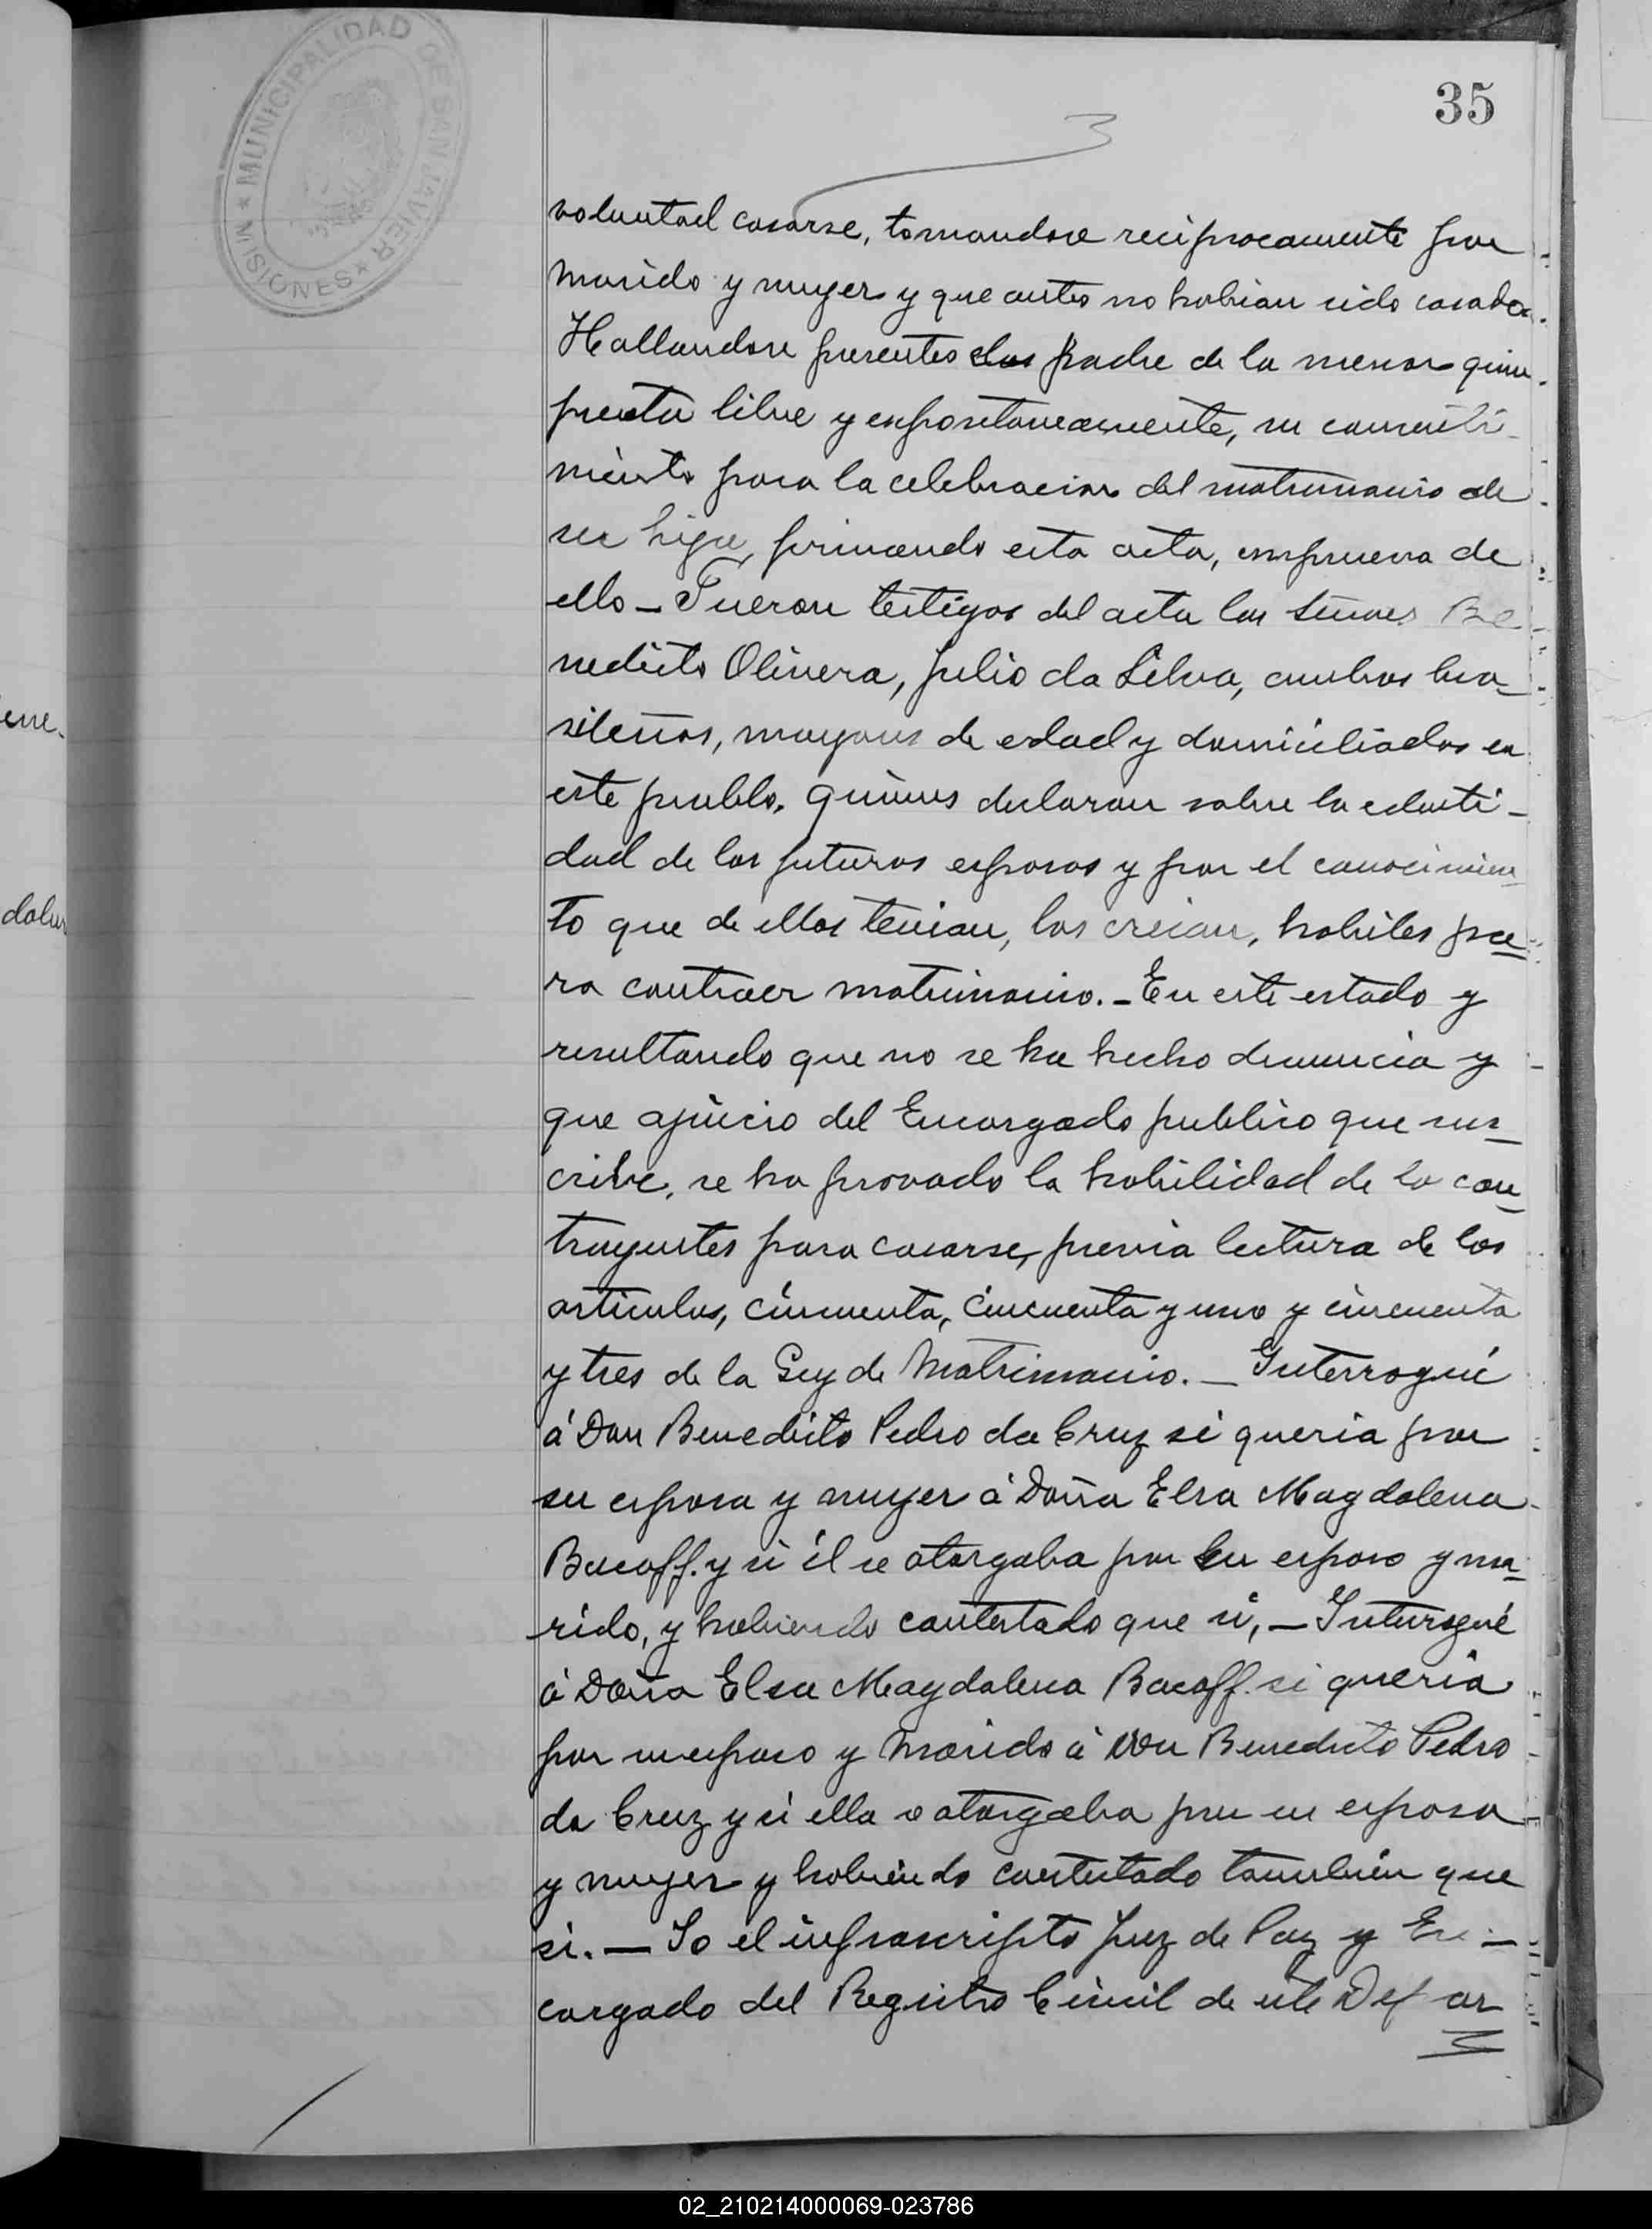 MUNICIPALIDAD DE SAN JAVIER
MISIONES
35
voluntad casarse, tomandose reciprocamente por
marido y muger y que antes no habian sido casados.
Hallandose presentes padre de la menor quien
presta libre y espontaneamente, su consenti-
miento para la celebracion del matrimonio de
su hija, firmando esta acta, en prueva de
ello - Fueron testigos del acta los señores Be
nedicto Olivera, Julio da Silva, ambos bra-
sileños, mayores de edad y domiciliados en
este pueblo, quienes declaran sobre la edenti-
dad de los futuros esposos y por el conocimien-
to que de ellos tenian, los creian, habiles pa-
ra contraer matrimonio. - En este estado y
resultando que no se ha hecho denuncia y
que ajuicio del Encargado publico que sus-
crive, se ha provado la habilidad de lo con-
trayentes para casarse, previa lectura de los
articulos, cincuenta, cincuenta y uno y cincuenta
y tres de la Ley de Matrimonio. - Interrogué
á Don Benedicto Pedro da Cruz si queria por
su esposa y muger á Doña Elsa Magdalena
Bacoff. y si él se otorgaba por su esposo y ma-
rido, y habiendo contestado que si, - Interrogué
á Doña Elsa Magdalena Bacoff. si queria
por su esposo y marido á Don Benedicto Pedro
da Cruz y si ella se otorgaba por su esposa
y muger y habiendo contestado tambien que
si. - Yo el infrascripto Juez de Paz y En-
cargado del Registro Civil de este Depar
ene-
02_210214000069-023786